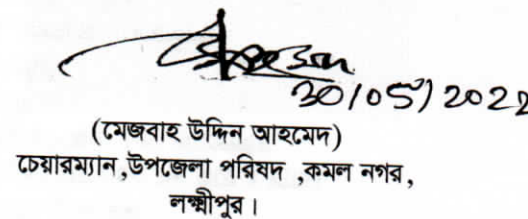 30/05/2022
(মেজবাহ উদ্দিন আহমেদ)
চেয়ারম্যান,উপজেলা পরিষদ ,কমল নগর,
লক্ষ্মীপুর।